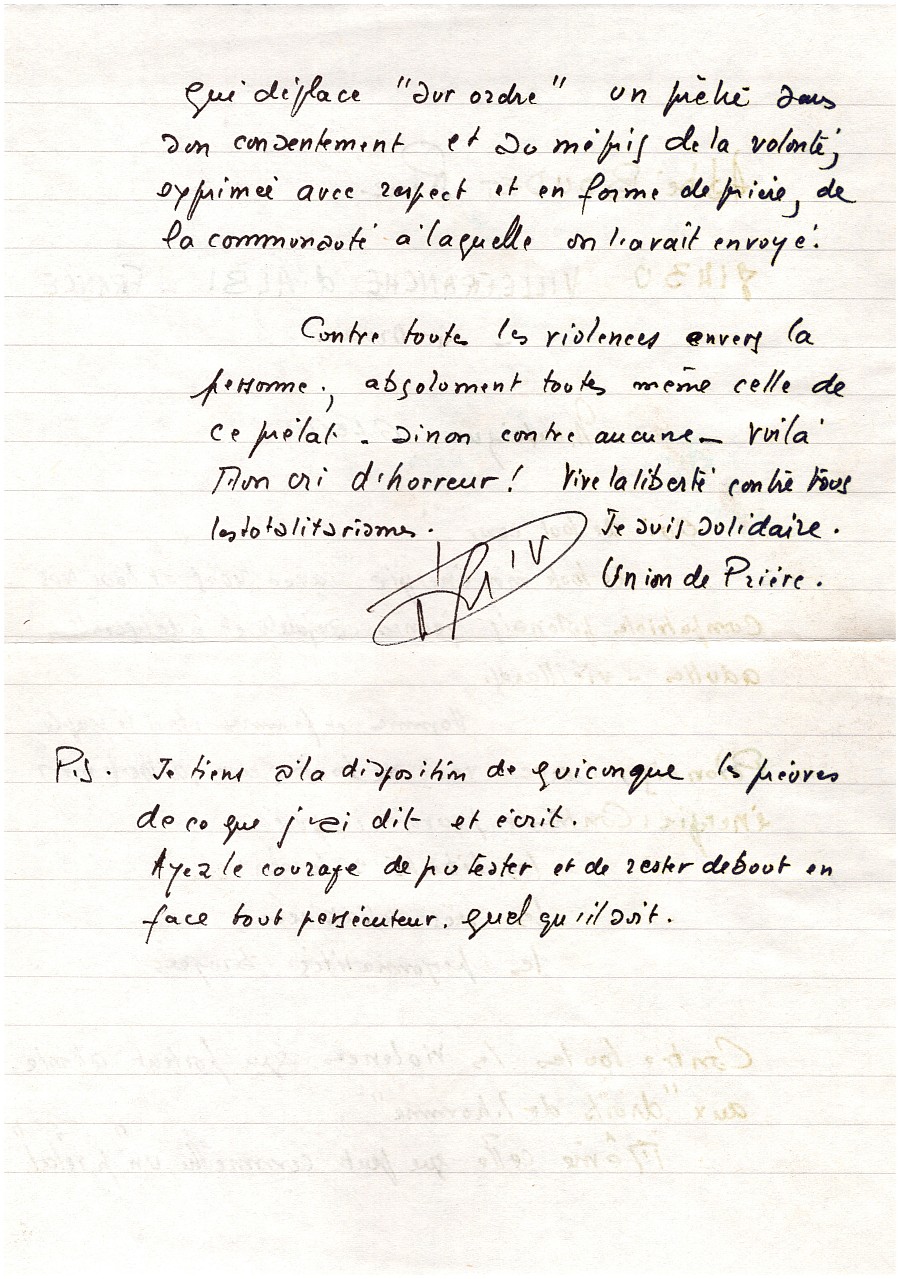 qui déplace "sur ordre" un prêtre sans
son consentement et au mépris de la volonté,
exprimée avec respect et en forme de prière, de
la communauté à laquelle on l'avait envoyé.
Contre toutes les violences envers la
personne, absolument toutes même celle de
ce prélat. Sinon contre aucune - Voilà
Mon cri d'horreur ! Vive la liberté contre tous
les totalitarismes. Je suis solidaire.
Union de Prière.
P.S. Je tiens à la disposition de quiconque les preuves
de ce que j'ai dit et écrit.
Ayez le courage de protester et de rester debout en
face tout persécuteur. quel qu'il soit.